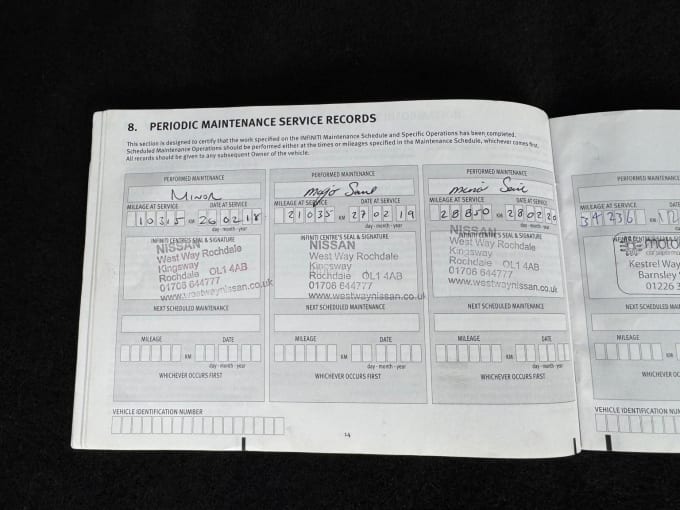 8. PERIODIC MAINTENANCE SERVICE RECORDS
This section is designed to certify that the work specified on the INFINITI Maintenance Schedule and Specific Operations has been completed.
Scheduled Maintenance Operations should be performed either at the times or mileages specified in the Maintenance Schedule, whichever comes first.
All records should be given to any subsequent Owner of the vehicle.
PERFORMED MAINTENANCE
MINOR
MILEAGE AT SERVICE DATE AT SERVICE
10315 KM 260218
day - month - year
INFINITI CENTRE'S SEAL & SIGNATURE
NISSAN
West Way Rochdale
Kingsway
Rochdale OL1 4AB
01706 644777
www.westwaynissan.co.uk
NEXT SCHEDULED MAINTENANCE
MILEAGE DATE
KM
day - month - year
WHICHEVER OCCURS FIRST
PERFORMED MAINTENANCE
major
MILEAGE AT SERVICE DATE AT SERVICE
21035 KM 270219
day - month - year
INFINITI CENTRE'S SEAL & SIGNATURE
NISSAN
West Way Rochdale
Kingsway
Rochdale OL1 4AB
01706 644777
www.westwaynissan.co.uk
NEXT SCHEDULED MAINTENANCE
MILEAGE DATE
KM
day - month - year
WHICHEVER OCCURS FIRST
PERFORMED MAINTENANCE
minor
MILEAGE AT SERVICE DATE AT SERVICE
28850 KM 280220
day - month - year
INFINITI CENTRE'S SEAL & SIGNATURE
NISSAN
West Way Rochdale
Kingsway
Rochdale OL1 4AB
01706 644777
www.westwaynissan.co.uk
NEXT SCHEDULED MAINTENANCE
MILEAGE DATE
KM
day - month - year
WHICHEVER OCCURS FIRST
VEHICLE IDENTIFICATION NUMBER
14
PERFORMED MAINTENANCE
MILEAGE AT SERVICE
34236 KM
Kestrel Way
Barnsley
01226 3
NEXT SCHEDULED MAIN
MILEAGE
KM
WHICHEVER OCCURS
VEHICLE IDENTIFICATION NUM